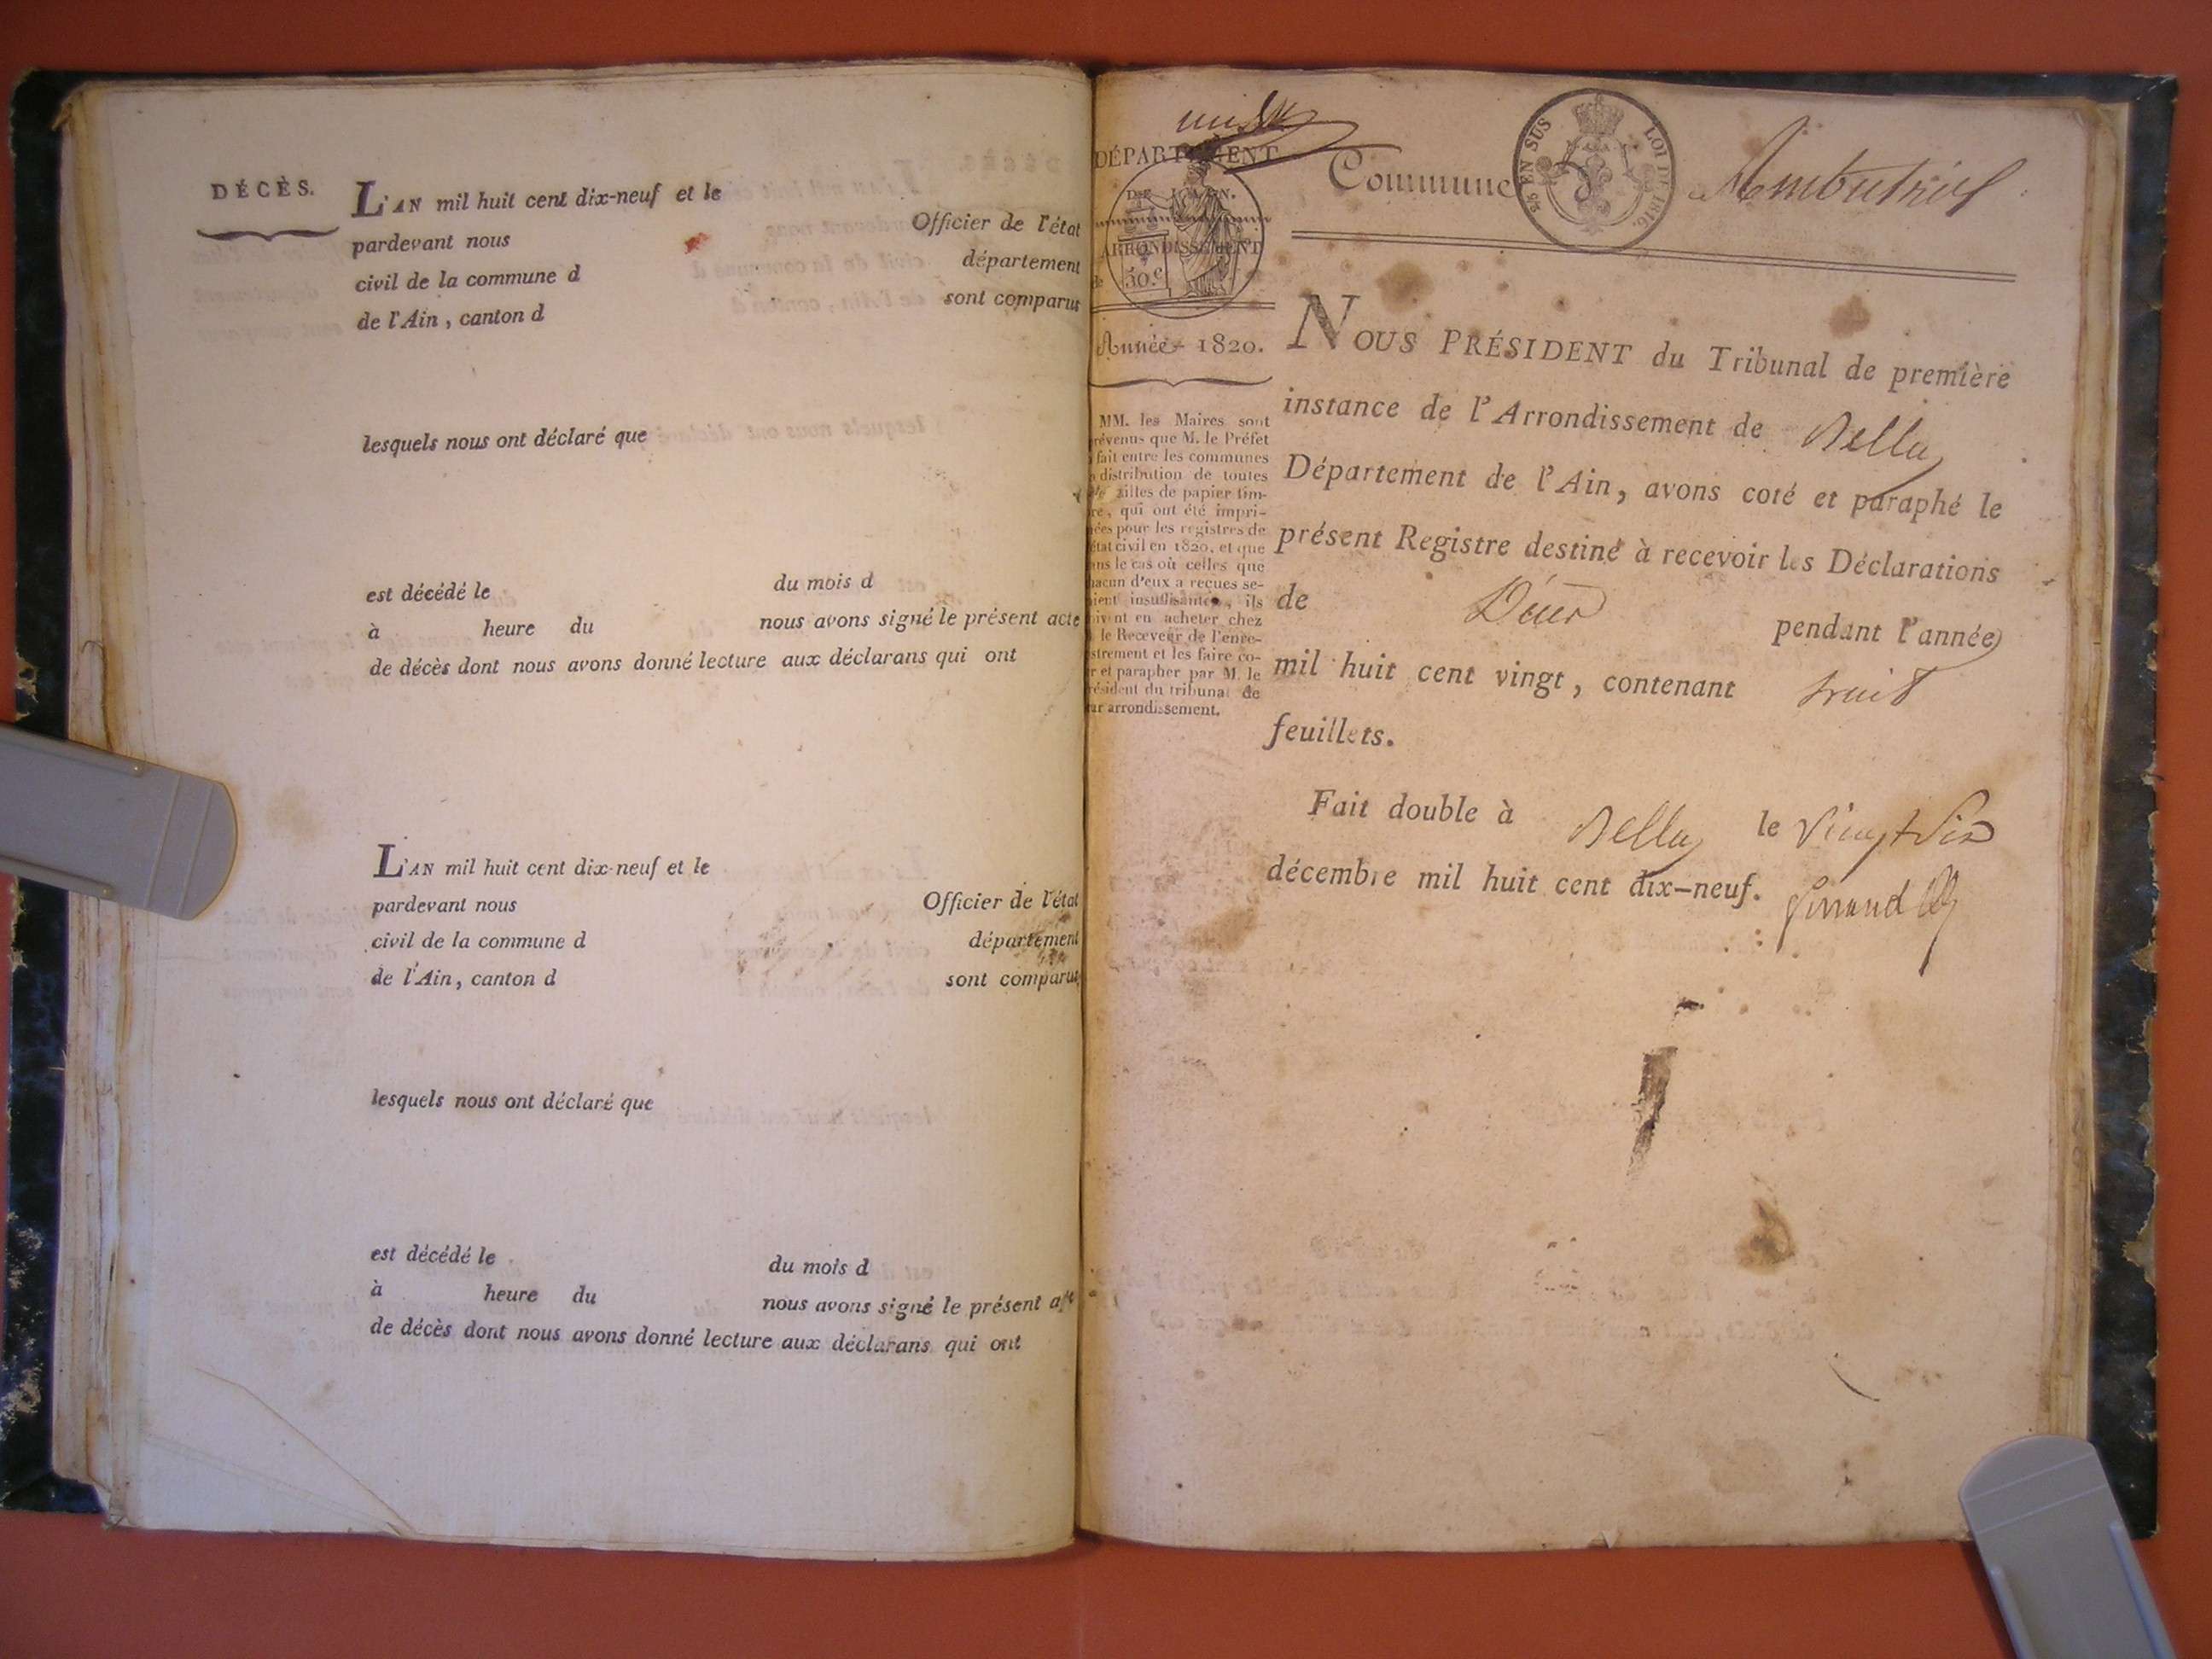 DÉCÈS.
L'AN mil huit cent dix-neuf et le
pardevant nous Officier de l'état
civil de la commune d département
de l'Ain, canton d sont comparus
lesquels nous ont déclaré que
est décédé le du mois d
à heure du nous avons signé le présent acte
de décès dont nous avons donné lecture aux déclarans qui ont
L'AN mil huit cent dix-neuf et le
pardevant nous Officier de l'état
civil de la commune d département
de l'Ain, canton d sont comparus
lesquels nous ont déclaré que
est décédé le du mois d
à heure du nous avons signé le présent acte
de décès dont nous avons donné lecture aux déclarans qui ont
DÉPARTEMENT
DE L'AIN.
ARRONDISSEMENT
de
50.c
Année 1820.
MM. les Maires sont
prévenus que M. le Préfet
a fait entre les communes
la distribution de toutes
les feuilles de papier tim-
bré, qui ont été impri-
mées pour les registres de
l'état civil en 1820, et que
dans le cas où celles que
chacun d'eux a reçues se-
raient insuffisantes, ils
doivent en acheter chez
M. le Receveur de l'enre-
gistrement et les faire co-
ter et parapher par M. le
Président du tribunal de
leur arrondissement.
Commune Ambutrix
EN SUS LOI DE 1816.
NOUS PRÉSIDENT du Tribunal de première
instance de l'Arrondissement de Belley
Département de l'Ain, avons coté et paraphé le
présent Registre destiné à recevoir les Déclarations
de Décès pendant l'année
mil huit cent vingt, contenant huit
feuillets.
Fait double à Belley le vingt six
décembre mil huit cent dix-neuf.